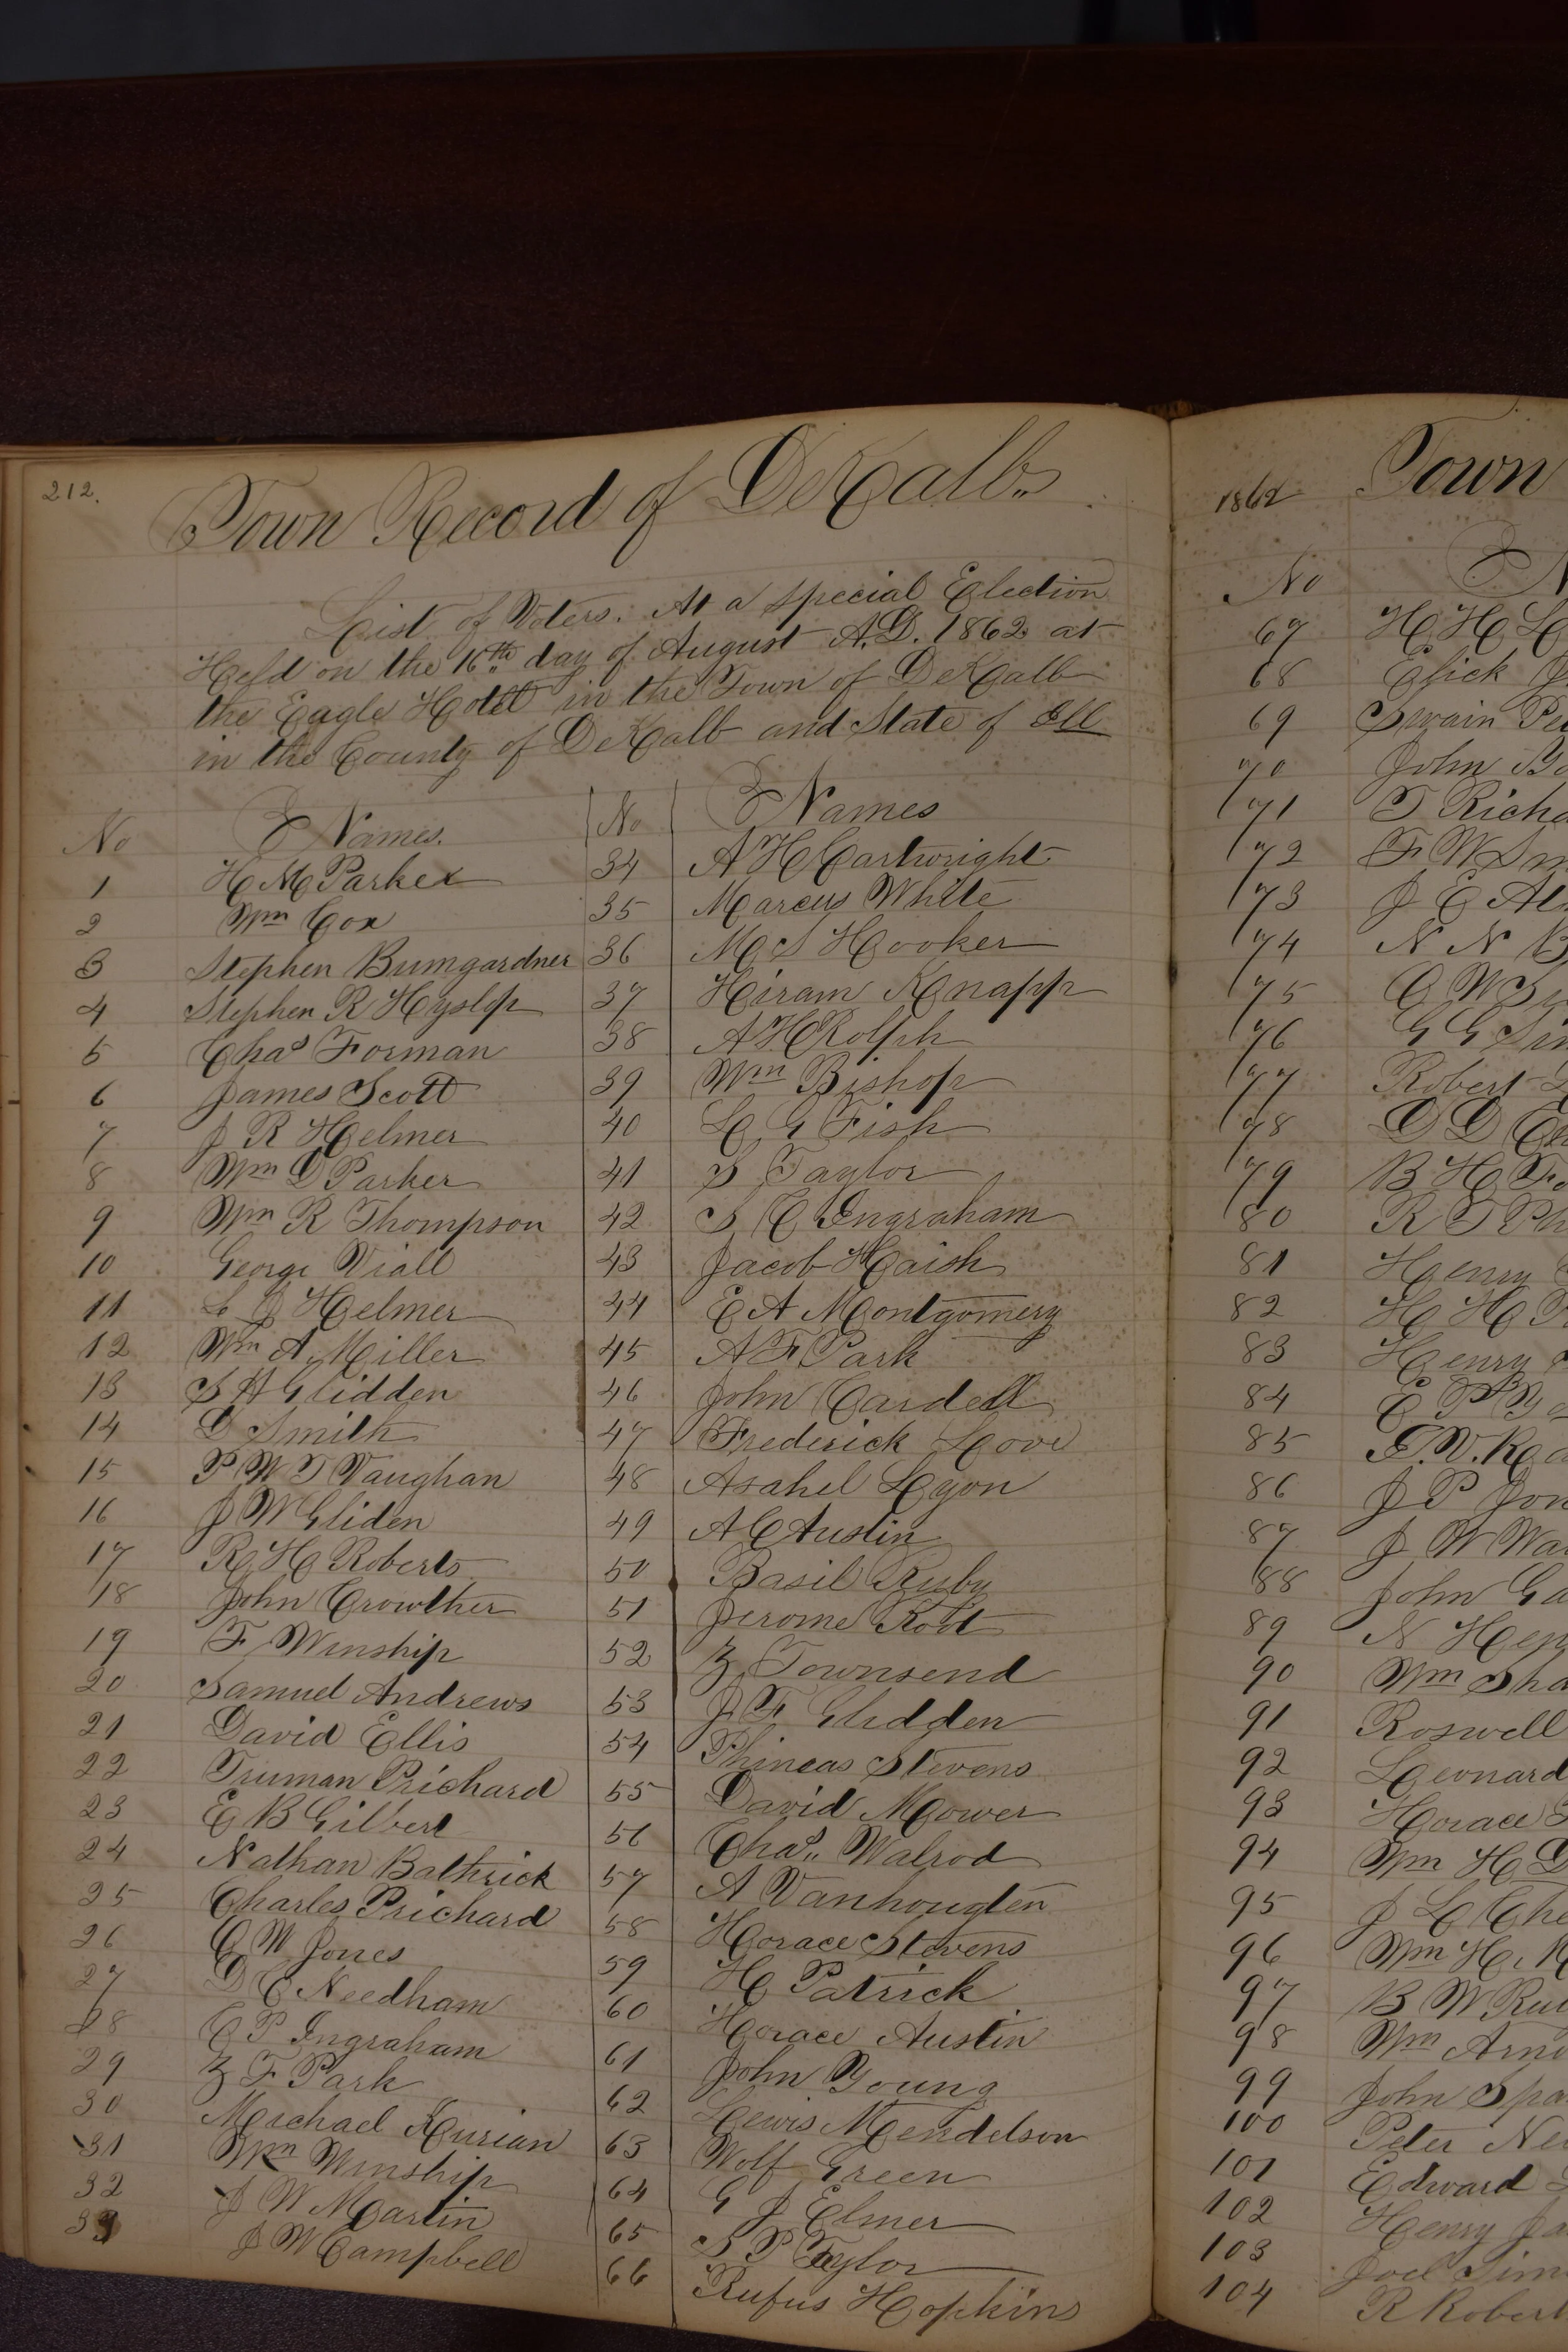 212.
Town Record of DeKalb.
List of Voters. At a special Election
Held on the 16th day of August A.D. 1862 at
the Eagle Hotel in the Town of DeKalb
in the County of DeKalb and State of Ill
No Names. No Names
1 H M Parker 34 A H Cartwright
2 Wm Cox 35 Marcus White
3 Stephen Bumgardner 36 M S Hooker
4 Stephen R Hyslop 37 Hiram Knapp
5 Chas Forman 38 A H Rolph
6 James Scott 39 Wm Bishop
7 J R Helmer 40 L G Fish
8 Wm D Parker 41 S Taylor
9 Wm R Thompson 42 S C Ingraham
10 George Viall 43 Jacob Haish
11 L J Helmer 44 E A Montgomery
12 Wm A Miller 45 A F Park
13 S H Glidden 46 John Cardell
14 D Smith 47 Frederick Love
15 P W T Vaughan 48 Asahel Lyon
16 J W Gliden 49 A C Austin
17 R H Roberts 50 Basil Rusby
18 John Crowther 51 Jerome Root
19 F Winship 52 Z Townsend
20 Samuel Andrews 53 J F Glidden
21 David Ellis 54 Phineas Stevens
22 Truman Prichard 55 David Mower
23 E B Gilbert 56 Chas. Walrod
24 Nathan Bathrick 57 A Vanhougten
25 Charles Prichard 58 Horace Stevens
26 C W Jones 59 H Patrick
27 D C Needham 60 Horace Austin
28 C P Ingraham 61 John Young
29 Z F Park 62 Lewis Mendelson
30 Michael Kurian 63 Wolf Green
31 Wm Winship 64 G J Elmer
32 J W Martin 65 S P Taylor
33 J W Campbell 66 Rufus Hopkins
1862 Town
No
67 H H
68 Elick
69 Swain
70 John
71 T
72 F W
73 J E
74 N N
75 C W
76 G G
77 Robert
78 D D
79 B H
80 R T
81 Henry
82 H H
83 Henry
84 E P
85
86 J P
87 J W
88 John
89 N
90 Wm
91 Roswell
92 Leonard
93 Horace
94 Wm H
95 J L
96 Wm H.
97 B W
98 Wm
99 John
100 Peter
101 Edward
102 Henry
103 Joel
104 R